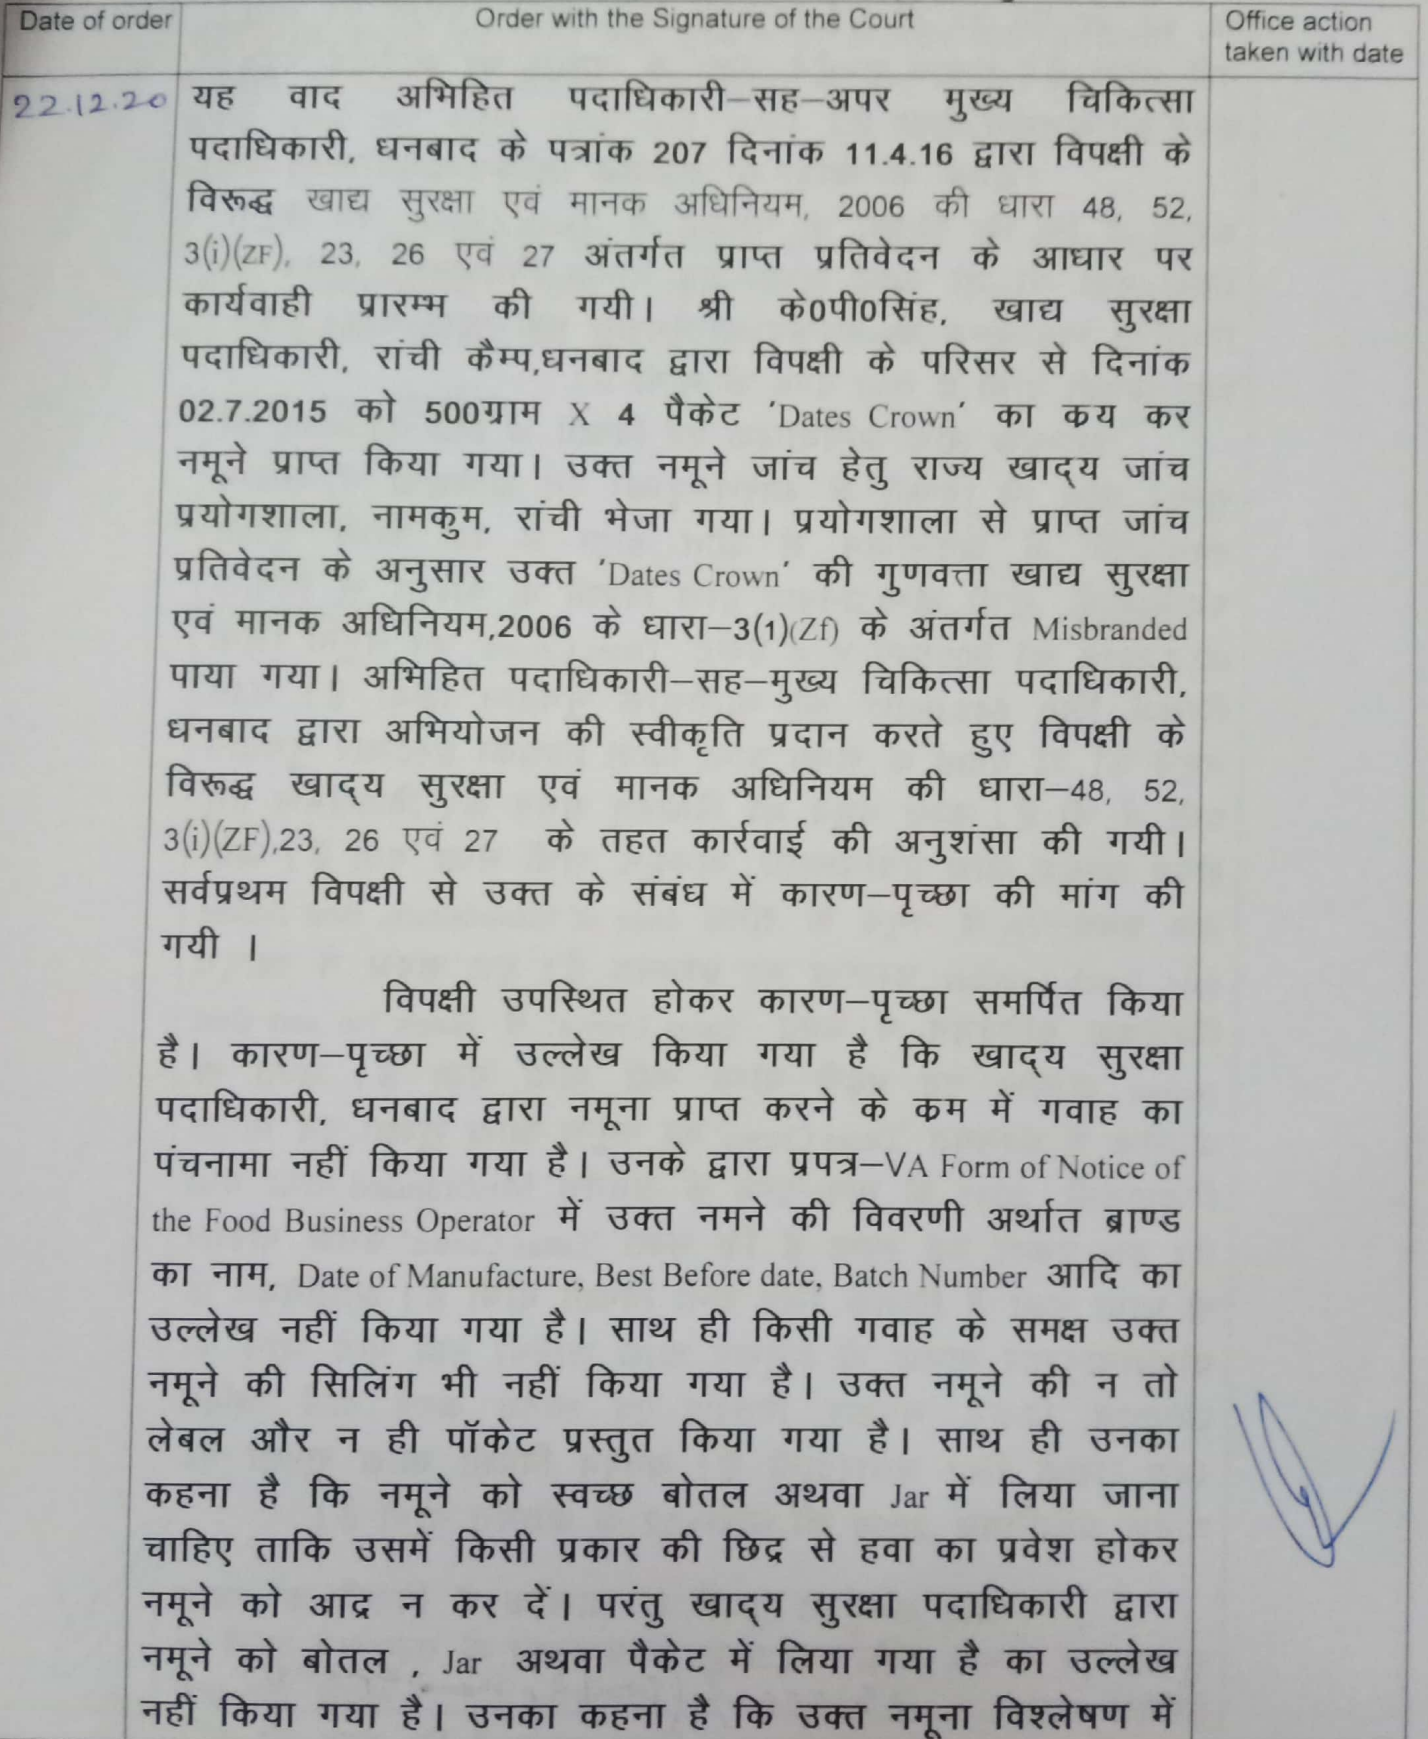 Date of order
Order with the Signature of the Court
Office action
taken with date
22.12.20
यह वाद अभिहित पदाधिकारी–सह–अपर मुख्य चिकित्सा
पदाधिकारी, धनबाद के पत्रांक 207 दिनांक 11.4.16 द्वारा विपक्षी के
विरूद्ध खाद्य सुरक्षा एवं मानक अधिनियम, 2006 की धारा 48, 52,
3(i)(ZF), 23, 26 एवं 27 अंतर्गत प्राप्त प्रतिवेदन के आधार पर
कार्यवाही प्रारम्भ की गयी। श्री के0पी0सिंह, खाद्य सुरक्षा
पदाधिकारी, रांची कैम्प,धनबाद द्वारा विपक्षी के परिसर से दिनांक
02.7.2015 को 500ग्राम X 4 पैकेट 'Dates Crown' का कय कर
नमूने प्राप्त किया गया। उक्त नमूने जांच हेतु राज्य खाद्‌य जांच
प्रयोगशाला, नामकुम, रांची भेजा गया। प्रयोगशाला से प्राप्त जांच
प्रतिवेदन के अनुसार उक्त 'Dates Crown' की गुणवत्ता खाद्य सुरक्षा
एवं मानक अधिनियम,2006 के धारा–3(1)(Zf) के अंतर्गत Misbranded
पाया गया। अभिहित पदाधिकारी–सह–मुख्य चिकित्सा पदाधिकारी,
धनबाद द्वारा अभियोजन की स्वीकृति प्रदान करते हुए विपक्षी के
विरूद्ध खाद्‌य सुरक्षा एवं मानक अधिनियम की धारा–48, 52,
3(i)(ZF),23, 26 एवं 27 के तहत कार्रवाई की अनुशंसा की गयी।
सर्वप्रथम विपक्षी से उक्त के संबंध में कारण–पृच्छा की मांग की
गयी ।
विपक्षी उपस्थित होकर कारण–पृच्छा समर्पित किया
है। कारण–पृच्छा में उल्लेख किया गया है कि खाद्‌य सुरक्षा
पदाधिकारी, धनबाद द्वारा नमूना प्राप्त करने के कम में गवाह का
पंचनामा नहीं किया गया है। उनके द्वारा प्रपत्र–VA Form of Notice of
the Food Business Operator में उक्त नमने की विवरणी अर्थात ब्राण्ड
का नाम, Date of Manufacture, Best Before date, Batch Number आदि का
उल्लेख नहीं किया गया है। साथ ही किसी गवाह के समक्ष उक्त
नमूने की सिलिंग भी नहीं किया गया है। उक्त नमूने की न तो
लेबल और न ही पॉकेट प्रस्तुत किया गया है। साथ ही उनका
कहना है कि नमूने को स्वच्छ बोतल अथवा Jar में लिया जाना
चाहिए ताकि उसमें किसी प्रकार की छिद्र से हवा का प्रवेश होकर
नमूने को आद्र न कर दें। परंतु खाद्‌य सुरक्षा पदाधिकारी द्वारा
नमूने को बोतल , Jar अथवा पैकेट में लिया गया है का उल्लेख
नहीं किया गया है। उनका कहना है कि उक्त नमूना विश्लेषण में